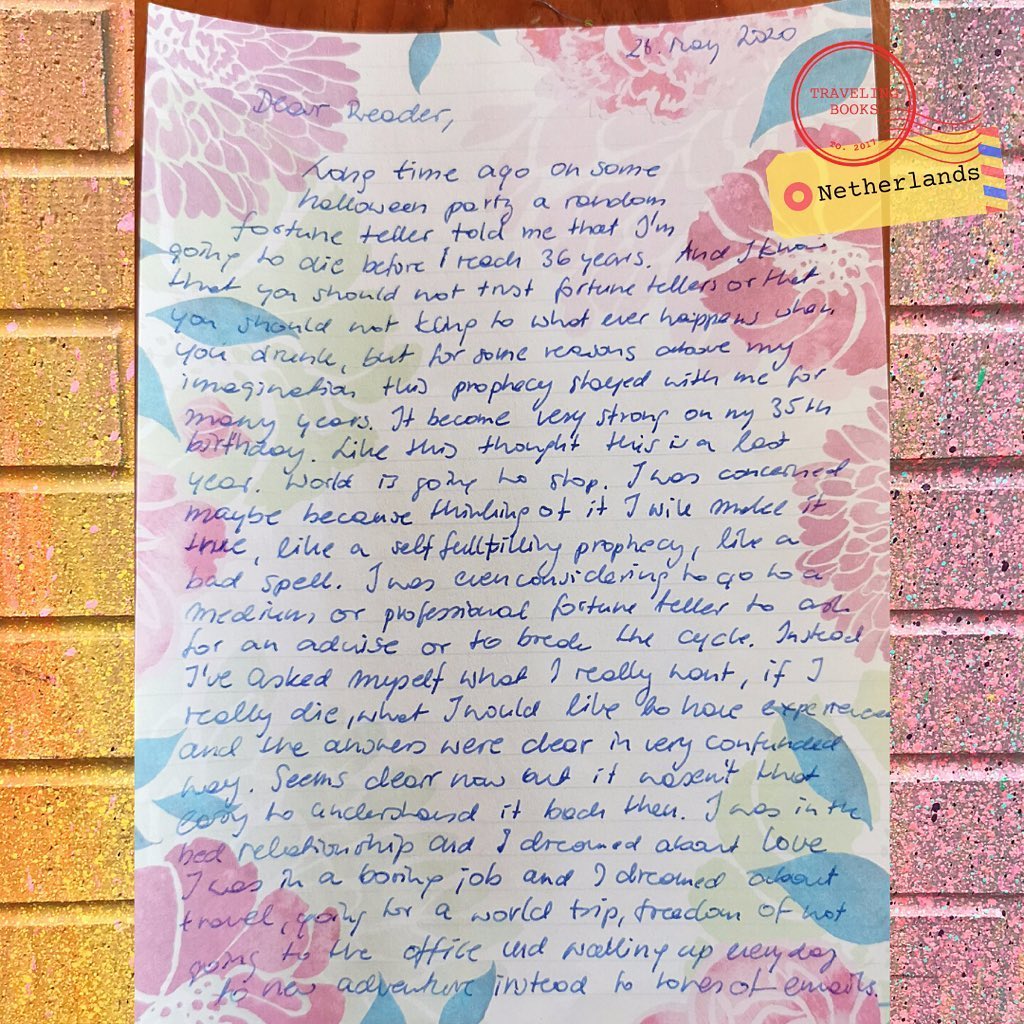 26. May 2020
TRAVELING
BOOKS
TO. 2017
Netherlands
Dear Reader,
Long time ago on some
halloween party a random
fortune teller told me that I'm
going to die before I reach 36 years. And I know
that you should not trust fortune tellers or that
you should not kling to what ever happens when
you drunk, but for some reasons above my
imagination this prophecy stayed with me for
many years. It became very strong on my 35th
birthday. Like this thought this is a last
year. World is going to stop. I was concerned
maybe because thinking of it I will make it
true, like a self fullfilling prophecy, like a
bad spell. I was even considering to go to a
medium or professional fortune teller to ask
for an advise or to break the cycle. Instead
I've asked myself what I really want, if I
really die, what I would like to have experienced
and the answers were clear in very confunded
way. Seems clear now but it wasen't that
easy to understand it back then. I was in the
bad relationship and I dreamed about love
I was in a boring job and I dreamed about
travel, going for a world trip, freedom of not
going to the office and walking up everyday
to new adventure instead to tones of emails.